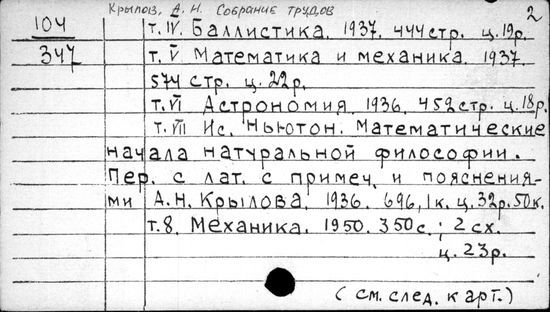 Крылов, А. Н. Собрание трудов
2
104
347
т. IV. Баллистика. 1937. 444 стр. ц. 19р.
т. V. Математика и механика. 1937.
574 стр. ц. 22р.
т. VI Астрономия. 1936. 452 стр. ц. 18р.
т. VII Ис. Ньютон. Математические
начала натуральной философии.
Пер. с лат. с примеч. и пояснения-
ми А. Н. Крылова. 1936. 696, 1к. ц. 32р. 50к.
т. 8. Механика. 1950. 350 с.; 2 сх.
ц. 23р.
(см. след. карт.)